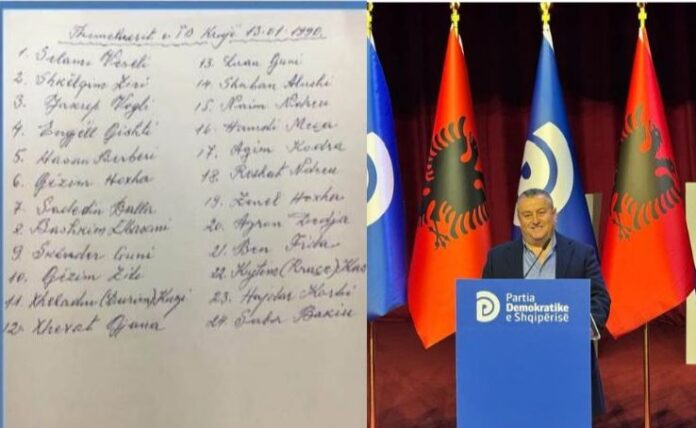 Themeluesit e PD Krujë 13.01.1990.
1. Selami Veseli
2. Shkëlqim Ziri
3. Jakup Vogli
4. Engjëll Gishti
5. Hasan Berberi
6. Gëzim Hoxha
7. Sadedin Balla
8. Bashkim Elbasani
9. Skënder Guni
10. Gëzim Zile
11. Xheladin (Durim)
12. Xhevat Gjana
13. Luan Guni
14. Shaban Alushi
15. Naim Ndreu
16. Hamdi Meça
17. Agim Kodra
18. Reshat Ndreu
19. Zenel Hoxha
20. Agron Dedja
21. Ben
22. (Kruaç)
23. Hajdar
24. Bakiu
Partia
Demokratike
e Shqipërisë